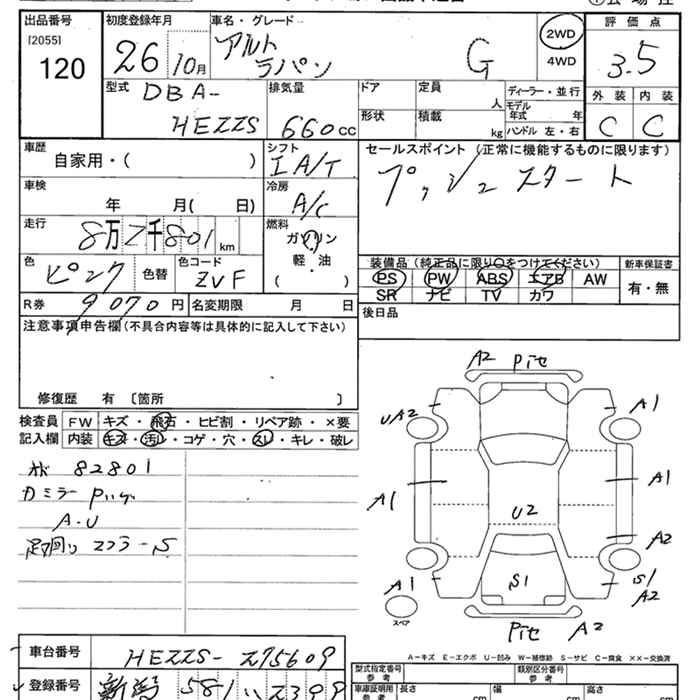 出品番号
[2055]
120
初度登録年月
26 10月
車名・グレード
アルト
ラパン
G
2WD
4WD
評価点
3.5
外装 内装
C C
型式
DBA-
HE22S
排気量
660cc
ドア
形状
定員
人
積載
kg
ディーラー・並行
モデル年式 年
ハンドル 左・右
車歴
自家用・( )
シフト
IA/T
セールスポイント (正常に機能するものに限ります)
プッシュ スタート
車検
年 月( 日)
冷房
A/C
走行
8万2千801km
燃料
ガソリン
軽・油
( )
色
ピンク
色替
色コード
ZVF
装備品(純正品に限り○をつけてください)
PS PW ABS エアB AW
SR ナビ TV カワ
新車保証書
有・無
R券 9070円
名変期限 月 日
後日品
注意事項申告欄(不具合内容等は具体的に記入して下さい)
修復歴 有 〔箇所 〕
検査員
記入欄
FW キズ・飛石・ヒビ割・リペア跡・×要
内装 キズ・汚レ・コゲ・穴・スレ・キレ・破レ
82801
カミラー
A.U
足回り
A2
A1
UA2
A1
A1
U2
A2
A1
S1
S1
A2
スペア
A2
A-キズ E-エクボ U-凹み W-補修跡 S-サビ C-腐食 ××-交換済
車台番号
HE22S-275609
登録番号
新潟 581
型式指定番号
参考
類別区分番号
参考
車庫証明用
参考
長さ
cm
幅
cm
高さ
cm